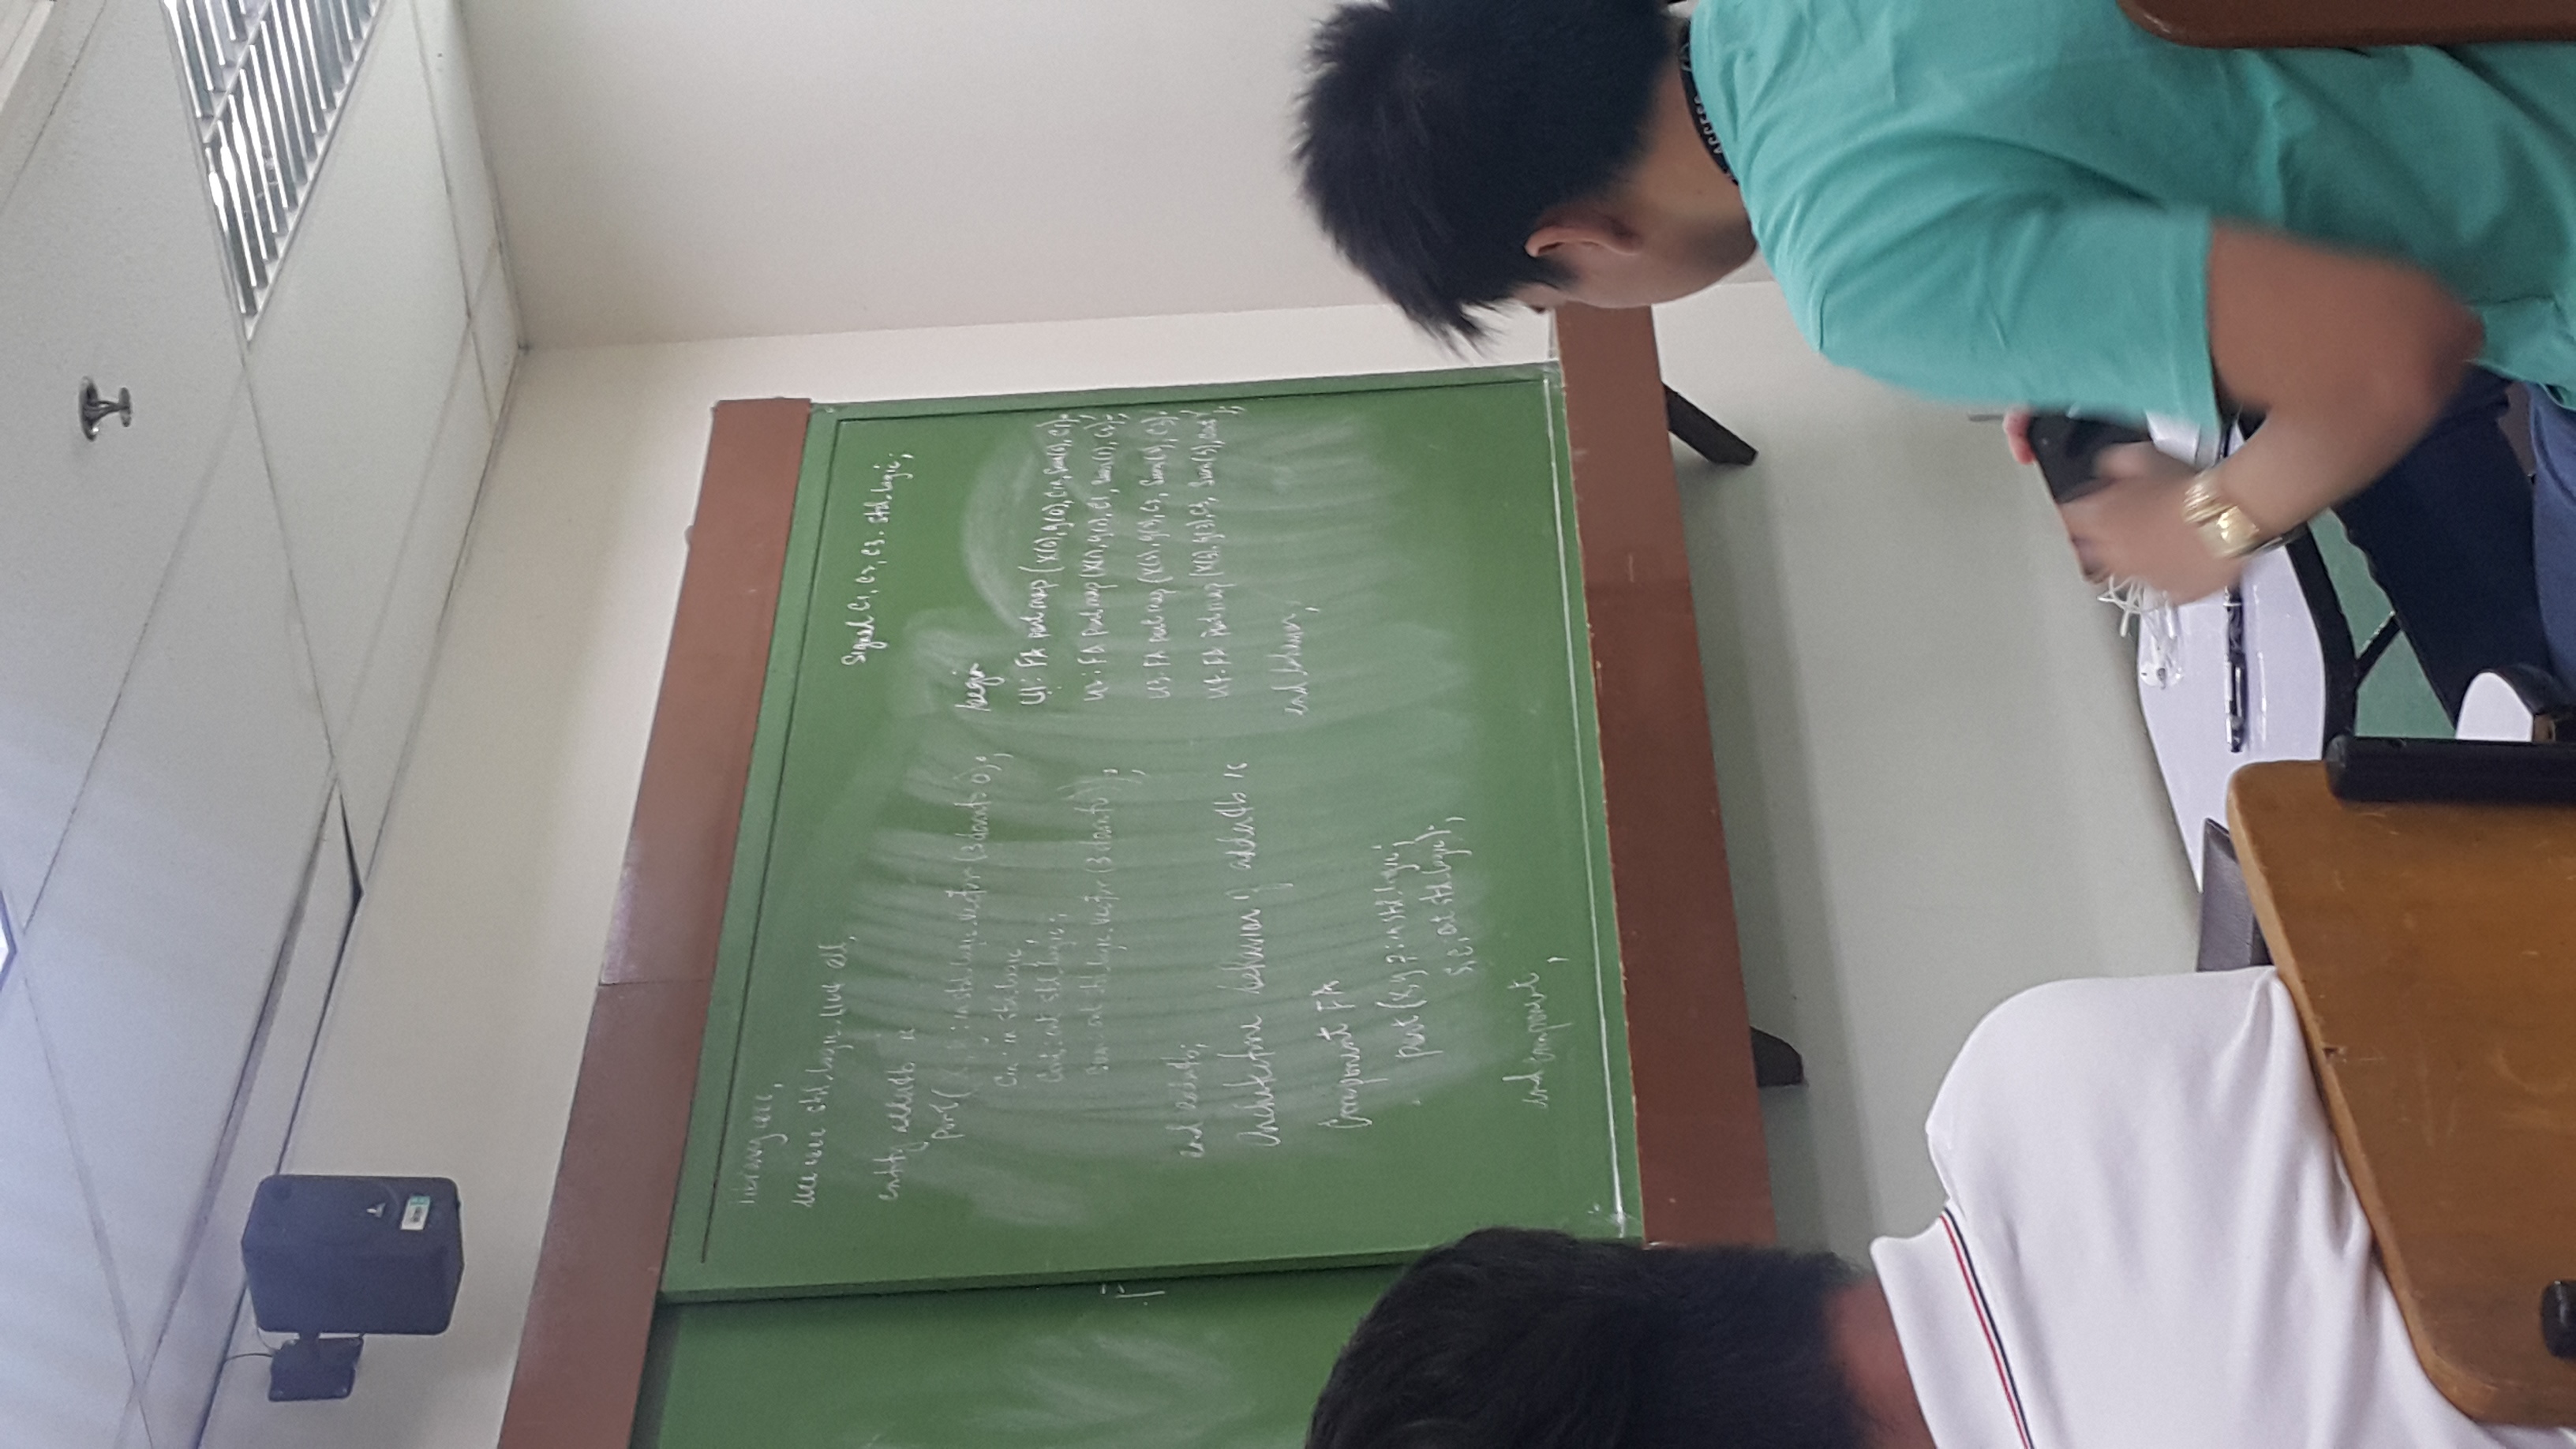 library ieee;
use ieee std_logic_1164 all;
entity adder4b is
port( : in std_logic_vector (3 downto 0);
Cin: in std_logic;
Cout: out std_logic;
Sum: out std_logic_vector (3 downto 0));
end adder4b;
Architecture behavior of adder4b is
Component FA
port (x,y,z: in std_logic;
s,c: out std_logic);
end component;
Signal C1, C2, C3: std_logic;
begin
U1: FA port map (x(0), y(0), Cin, Sum(0), C1);
U2: FA port map (x(1), y(1), C1, Sum(1), C2);
U3: FA port map (x(2), y(2), C2, Sum(2), C3);
U4: FA port map (x(3), y(3), C3, Sum(3), Cout);
end behavior;
ACCESS